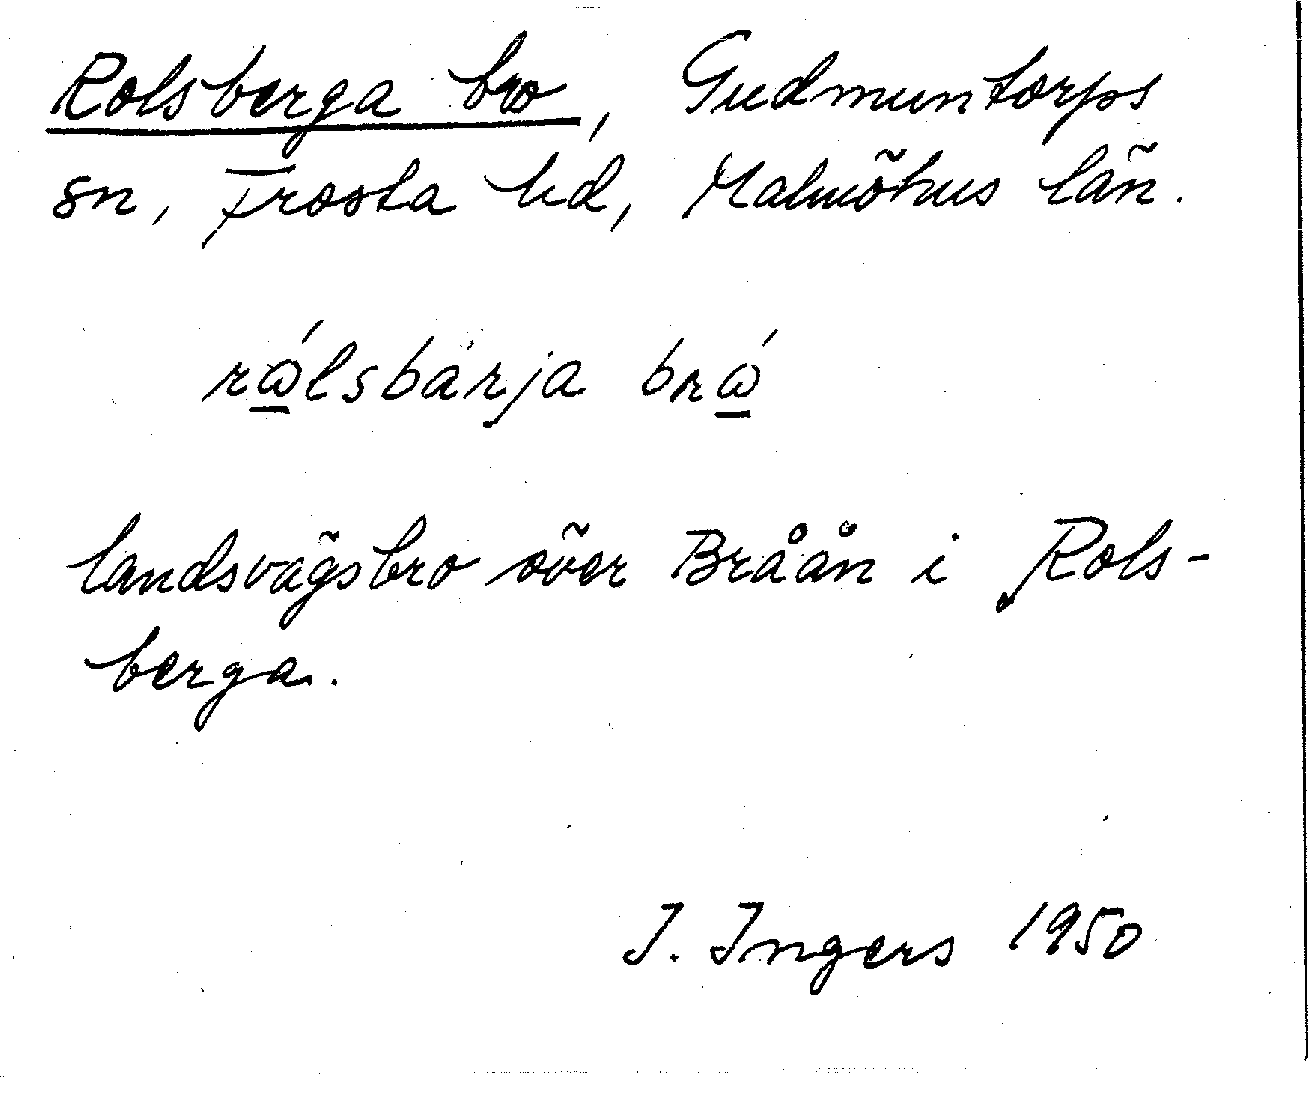 Rolsberga bro, Gudmuntorps
sn, Frosta hd, Malmöhus län.
rώ̲lsbàrja brώ̲
landsvägsbro över Bråån i Rols-
berga.
I. Ingers 1950